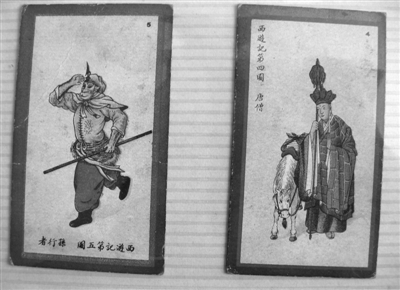 西遊記第五圖 孫行者
西遊記第四圖
唐僧